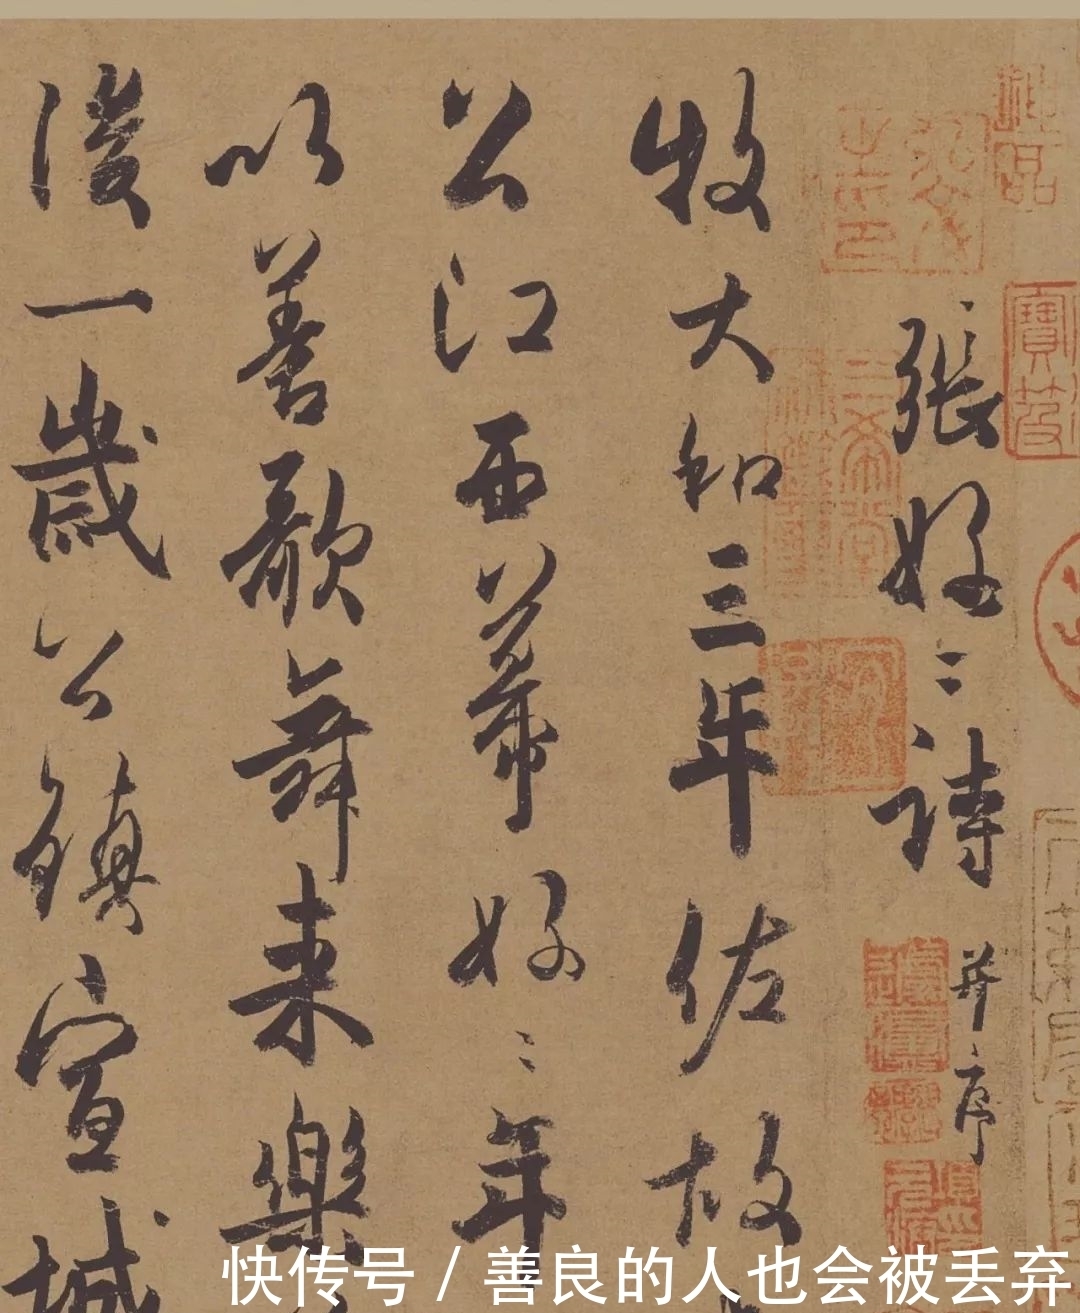 張好〻詩 并序
牧大和三年佐故
公江西幕好〻年
以善歌舞来樂
後一歲公鎮宣城
寶笈
三希堂
快传号 / 善良的人也会被丢弃